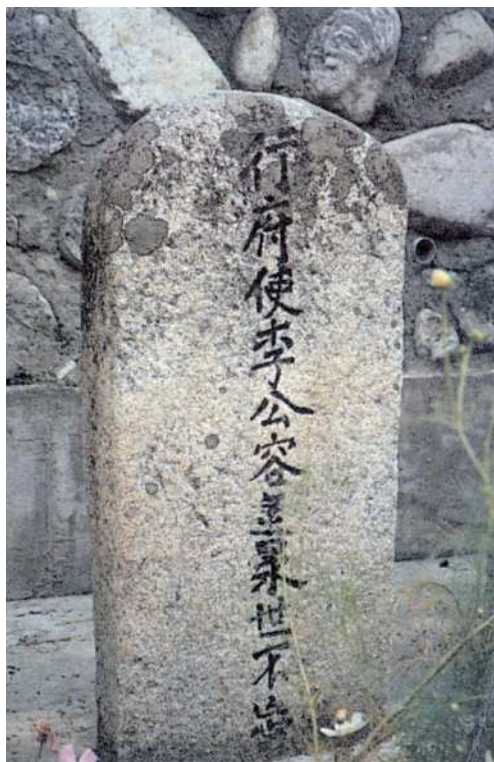 行府使李公容益永世不忘